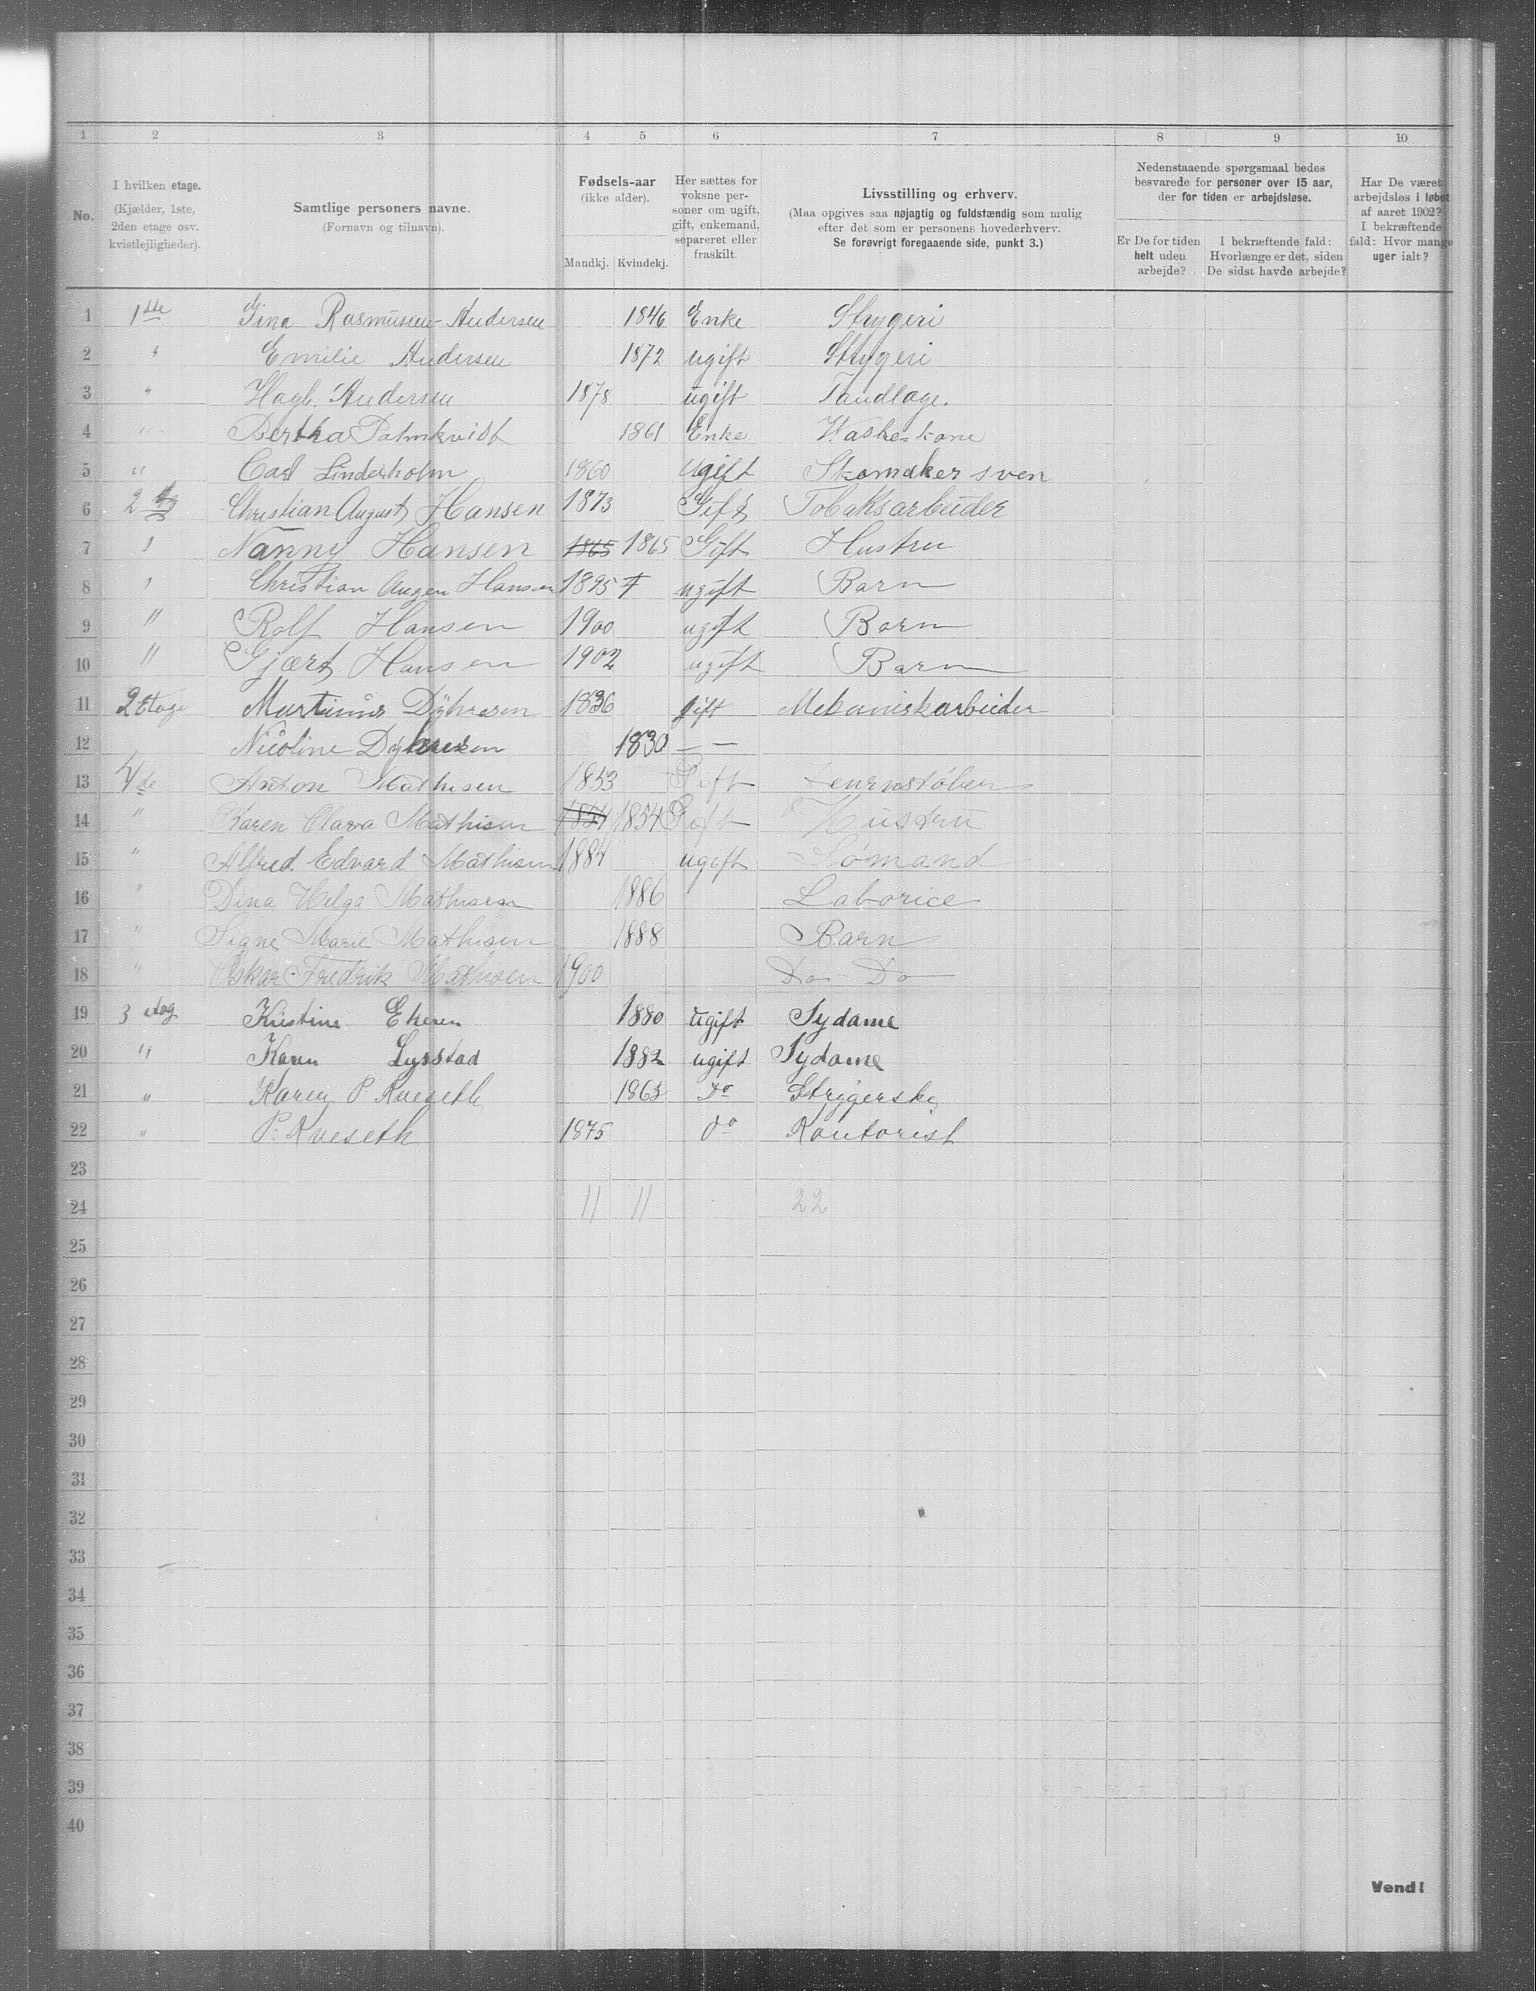 1 2 3 4 5 6 7 8 9 10
No. I hvilken etage. (Kjælder, 1ste, 2den etage osv. kvistlejligheder). Samtlige personers navne. (Fornavn og tilnavn). Fødsels-aar (ikke alder). Mandkj. Kvindekj. Her sættes for voksne personer om ugift, gift, enkemand, separeret eller fraskilt. Livsstilling og erhverv. (Maa opgives saa nøjagtig og fuldstændig som mulig efter det som er personens hovederhverv. Se forøvrigt foregaaende side, punkt 3.) Nedenstaaende spørgsmaal bedes besvarede for personer over 15 aar, der for tiden er arbejdsløse. Er De for tiden helt uden arbejde? I bekræftende fald: Hvorlænge er det, siden De sidst havde arbejde? Har De været arbejdsløs i løbet af aaret 1902? I bekræftende fald: Hvor mange uger ialt?
1 1ste Gina Rasmussen-Andersen 1846 Enke Strygeri
2 " Emilie Andersen 1872 ugift Strygeri
3 " Hagb. Andersen 1878 ugift Tandlæge.
4 " Bertha Palmkvist 1861 Enke Vaskekone
5 " Carl Linderholm 1860 ugift Skomaker sven
6 2 Christian August Hansen 1873 Gift Tobaksarbeider
7 " Nanny Hansen 1865 1865 Gift Hustru
8 " Christian Hansen 1895 ugift Barn
9 " Rolf Hansen 1900 ugift Barn
10 " Gjært Hansen 1902 ugift Barn
11 2 Etage Martinus Dÿhresen 1836 gift Mekaniskarbeider
12 Nicoline 1830 — —
13 4de Anton Mathisen 1853 Gift
14 " Karen Clara Mathisen 1854 1854 Gift Hustru
15 " Alfred Edvard Mathisen 1884 ugift Sømand
16 " Dina Helga Mathisen 1886 Laborice
17 " Signe Marie Mathisen 1888 Barn
18 " Oskar Fredrik Mathisen 1900 Do Do
19 3 etag Kristine Ekeren 1880 ugift Sydame
20 " Karen Lysstad 1882 ugift Sydame
21 " Karen P Kveseth 1863 Do Strygerske
22 " P. Kveseth 1875 do Kontorist
23
24 11 11 22
25
26
27
28
29
30
31
32
33
34
35
36
37
38
39
40
Vend!